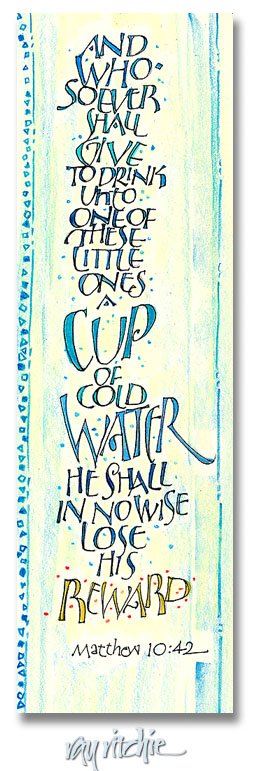 AND
WHO·
SOEVER
SHALL
GIVE
TO DRINK
UNTO
ONE OF
THESE
LITTLE
ONES
A
CUP
OF
COLD
WATER
HE SHALL
IN NO WISE
LOSE
HIS
REWARD
Matthew 10:42
ray ritchie